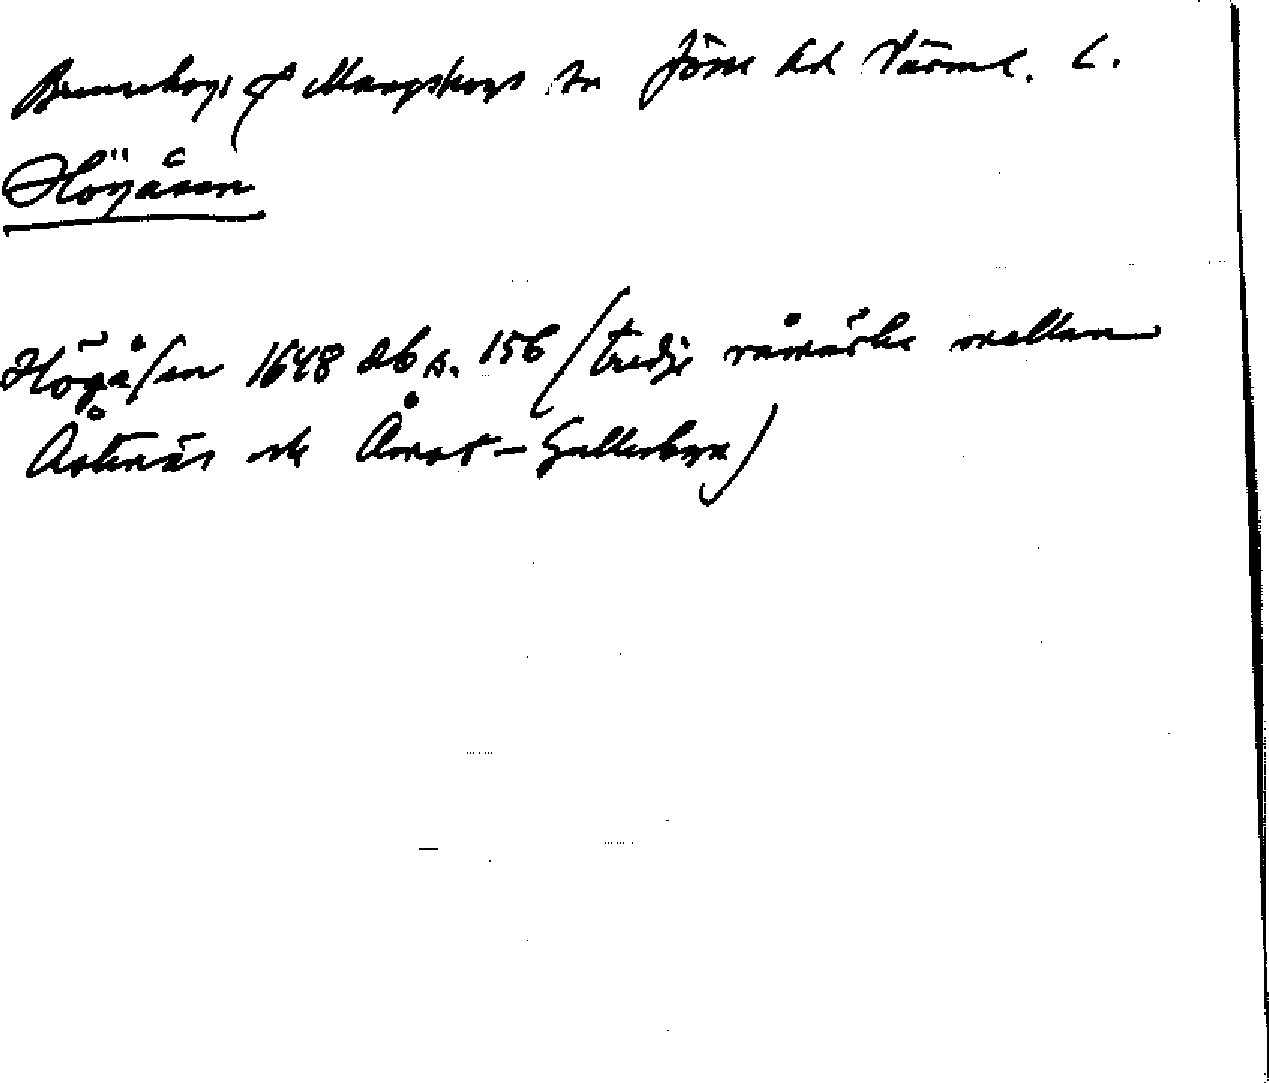 Brunskogs o Mangskogs sn Jösse hd Värml. l.
Högåsen
Högåsen 1648 db s. 156 (tredje råmärke mellan
Åstenäs och Åmot - Gullsbyn)